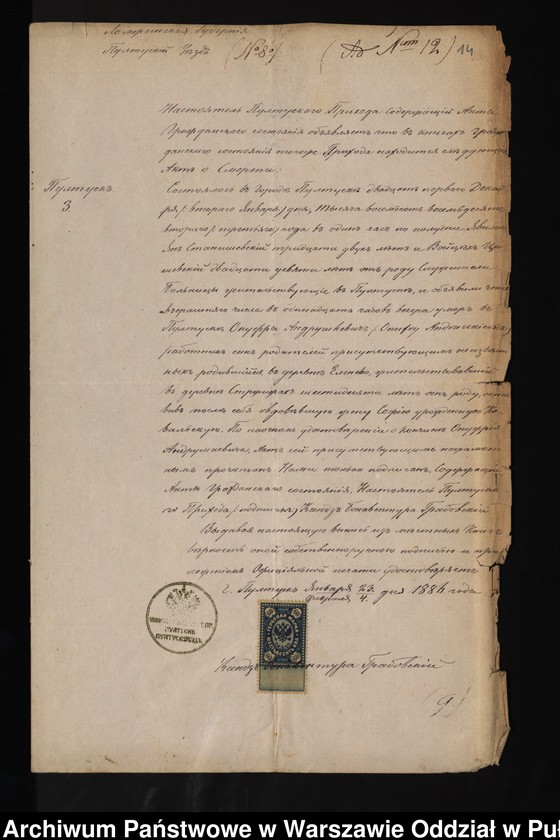 Ломжинская Губернія
Пултускій Уѣздъ (№ 80) (Къ № 12) 14
Настоятель Пултускаго Прихода содержащій Акты
Гражданскаго состоянія объявляетъ что въ книгахъ Граж
данскаго состоянія того Прихода находится слѣдующій
Актъ о Смерти:
Пултускъ
3.
Состоялось въ Городѣ Пултускѣ двадцать перваго Декаб
ря (втораго Января) дня, тысяча восемьсотъ восемьдесятъ
втораго (третьяго) года въ одинъ часъ по полудни. Явились
Янъ Станишевскій тридцати двухъ лѣтъ и Войцѣхъ
шевскій двадцати девяти лѣтъ отъ роду служители
Больницы жительствующіе въ Пултускѣ, и объявили что
вчерашняго числа въ одинадцать часовъ вечера умеръ въ
Пултускѣ Онуфрій Андрушкевичъ
работникъ сынъ родителей присутствующимъ неизвѣст
ныхъ родившійся въ деревнѣ жительствовавшій
въ деревнѣ шестидесяти лѣтъ отъ роду, оста
вивъ послѣ себя овдовѣвшую жену Софію урожденную Ко
вальскую. По настоящемъ удостовѣреніи о кончинѣ Онуфрія
Андрушкевича, Актъ сей присутствующимъ неграмот
нымъ прочитанъ Нами только подписанъ. Содержащій
Акты Гражданскаго состоянія, Настоятель Пултуска
го Прихода (подписалъ) Ксендзъ Бонавентура Грабовскій
Выдавая настоящую выпись изъ мѣстныхъ Книгъ
вѣрность оной собственноручною подписью и при
ложеніемъ Офиціяльной печати удостовѣряетъ
г. Пултускъ Января 23. дня 1884 года
Февраля 4.
Ксендзъ Бонавентура Грабовскій
(9)
Archiwum Państwowe w Warszawie Oddział w Pu